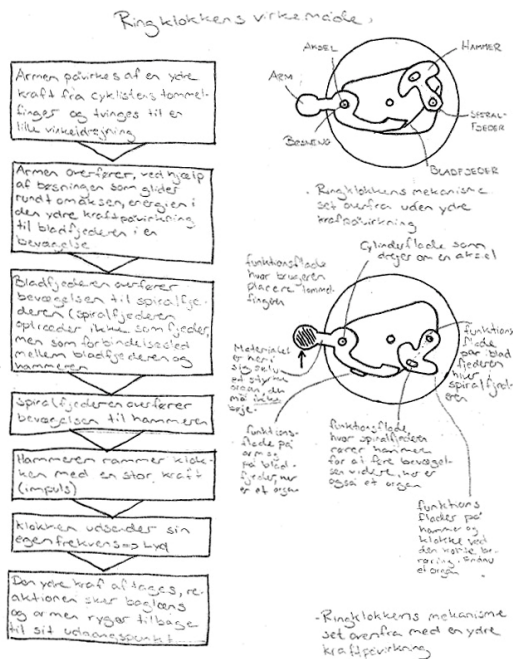 Ringklokkens virkemåde.
Armen påvirkes af en ydre
kraft fra cyklistens tommel-
finger og tvinges til en
lille vinkeldrejning
Armen overfører, ved hjælp
af bøsningen som glider
rundt om aksen, energien i
den ydre kraftpåvirkning
til bladfjederen i en
bevægelse
Bladfjederen overfører
bevægelsen til spiralfje-
deren (spiralfjederen
optræder ikke som fjeder,
men som forbindelsesled
mellem bladfjederen og
hammeren
Spiralfjederen overfører
bevægelsen til hammeren
Hammeren rammer klok-
ken med en stor kraft
(impuls)
Klokken udsender sin
egenfrekvens => Lyd
Den ydre kraf aftages, re-
aktionen sker baglæns
og armen ryger tilbage
til sit udgangspunkt
AKSEL
HAMMER
ARM
BØSNING
SPIRAL-
FJEDER
BLADFJEDER
- Ringklokkens mekanisme
set ovenfra uden ydre
kraftpåvirkning
Cylinderflade som
drejer om en aksel
funktionsflade
hvor brugeren
placere tommel-
fingeren
Materialet
er men i
sig selv
på
må ikke
bøje.
funktions-
flade på
arm og
på blad-
fjeder, her
er et organ
funktionsflade,
hvor spiralfjederen
rører hammer
for at føre bevægel-
sen videre, her er
også et organ
funktions
flade
bladfjederen
spiralfjed-
eren
funktions
flader på
hammer og
klokke ved
den korte be-
røring. Endnu
et organ
- Ringklokkens mekanisme
set ovenfra med en ydre
kraftpåvirkning